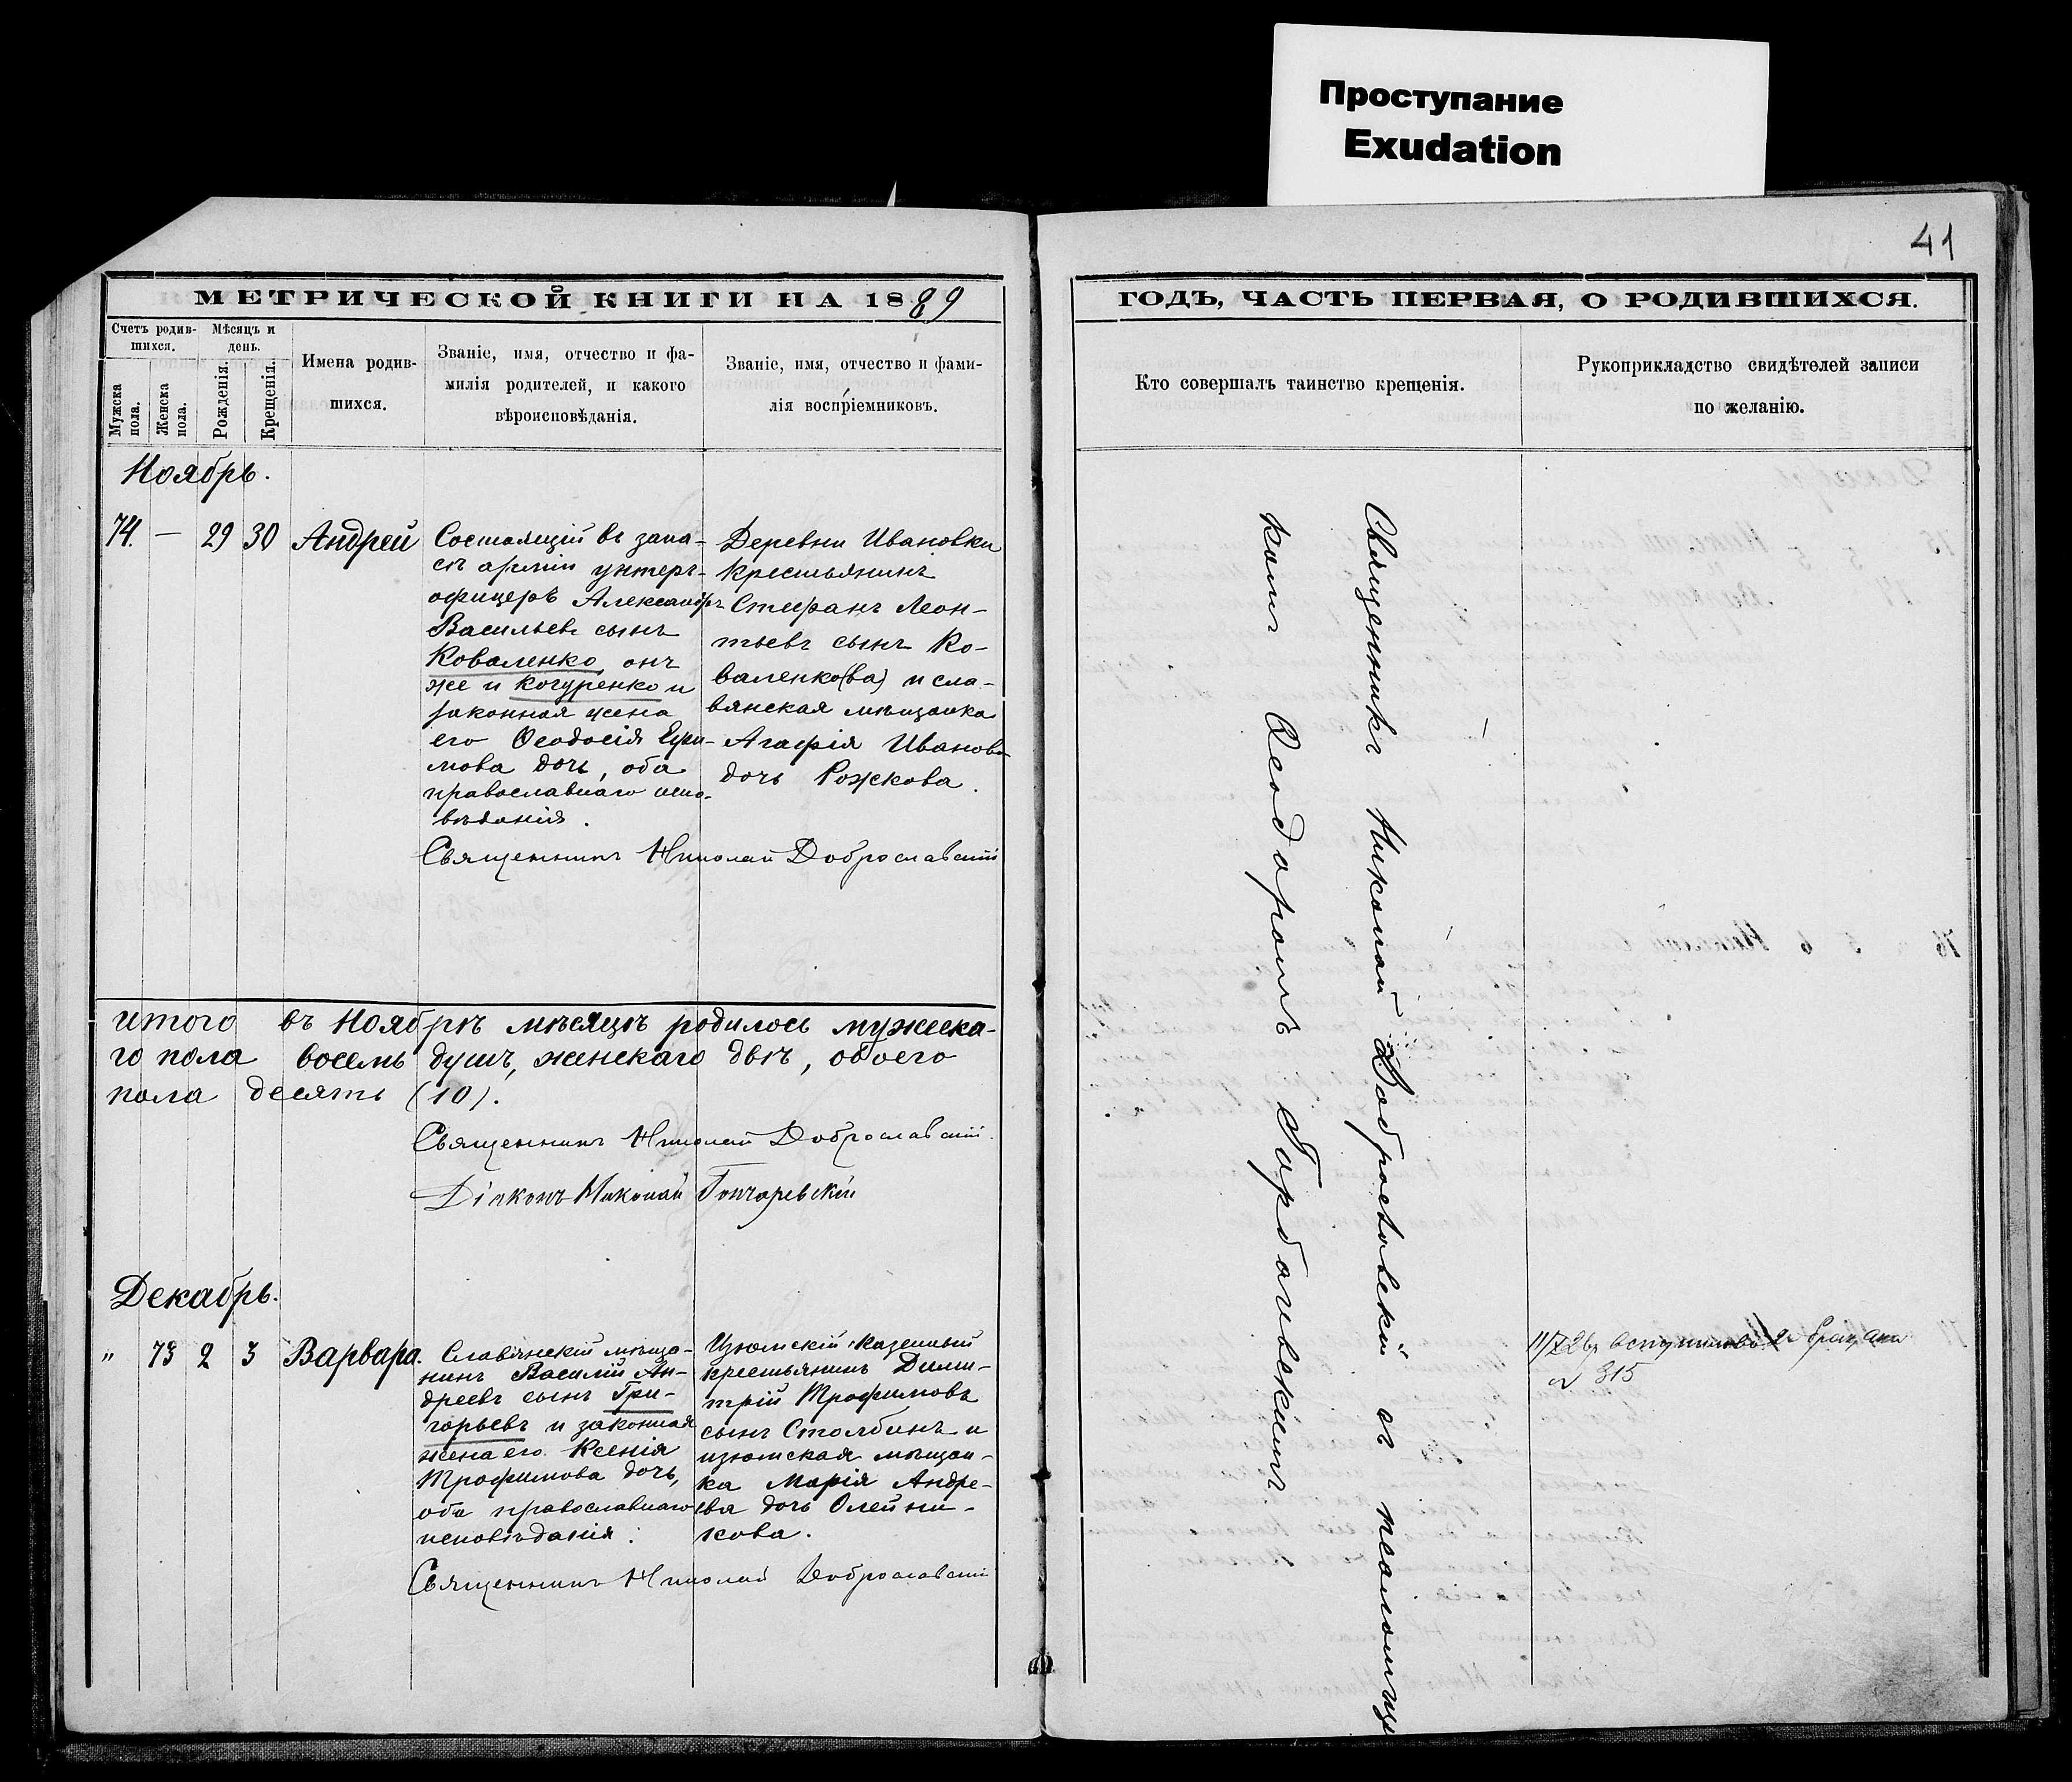 Проступание
Exudation
41
МЕТРИЧЕСКОЙ КНИГИ НА 1889
ГОДЪ, ЧАСТЬ ПЕРВАЯ, О РОДИВШИХСЯ.
Счетъ родив-
шихся.
Мужска
пола.
Женска
пола.
Мѣсяцъ и
день.
Рожденія.
Крещенія.
Имена родив-
шихся.
Званіе, имя, отчество и фа-
милія родителей, и какого
вѣроисповѣданія.
Званіе, имя, отчество и фами-
лія воспріемниковъ.
Кто совершалъ таинство крещенія.
Рукоприкладство свидѣтелей записи
по желанію.
Ноябрь.
74. — 29 30 Андрей
Состоящій въ запа-
сѣ арміи унтеръ-
офицеръ Александръ
Васильевъ сынъ
Коваленко, онъ
же и Кочуренко и
законная жена
его Ѳеодосія Ефи-
мова дочь, оба
православнаго испо-
вѣданія.
Деревни Ивановки
крестьянинъ
Стефанъ Леон-
тьевъ сынъ Ко-
валенко(ва) и сла-
вянская мѣщанка
Агафія Иванова
дочь Рожкова.
Священникъ Николай Доброславскій
итого въ Ноябрѣ мѣсяцѣ родилось мужеска-
го пола восемь душъ, женскаго двѣ, обоего
пола десять (10).
Священникъ Николай Доброславскій.
Діаконъ Николай Гончаревскій
Декабрь.
" 73 2 3 Варвара.
Славянскій мѣща-
нинъ Василій Ан-
дреевъ сынъ Гри-
горьевъ и законная
жена его Ксенія
Трофимова дочь,
оба православнаго
исповѣданія.
Изюмскій казенный
крестьянинъ Дими-
трій Трофимовъ
сынъ Столбинъ и
изюмская мѣщан-
ка Марія Андре-
ева дочь Олейни-
кова.
Священникъ Николай Доброславскій
Священникъ Николай Доброславскій съ псаломщи
комъ Ѳеодоромъ Горбачевскимъ
вступила во 2 й брак, акт
№ 315